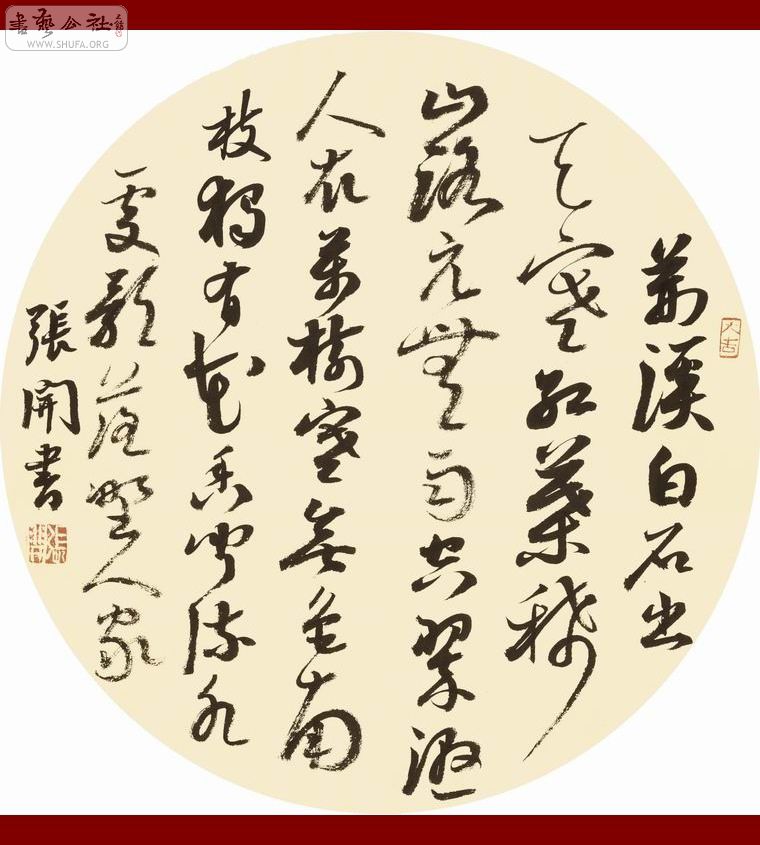 書藝公社
WWW.SHUFA.ORG
荊溪白石出
天寒紅葉稀
山路元無雨空翠濕
人衣萬樹寒無色南
枝獨有花香聞流水
處影落野人家
張開書